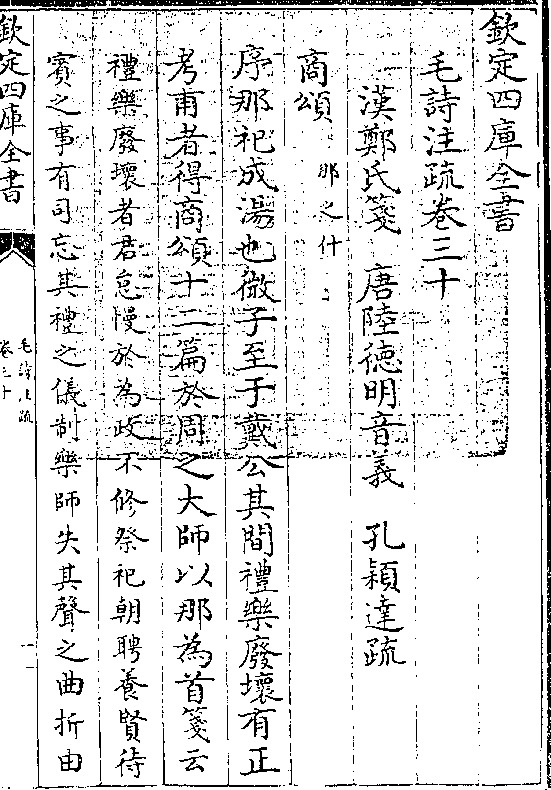 欽定四庫全書
毛詩注疏卷三十
漢鄭氏箋　唐陸德明音義　孔穎達疏
商頌　那之什
序那祀成湯也微子至于戴公其間禮樂廢壞有正
考甫者得商頌十二篇於周之大師以那為首箋云
禮樂廢壞者君怠慢於為政不修祭祀朝聘養賢待
賓之事有司忘其禮之儀制樂師失其聲之曲折由
欽定四庫全書
毛詩注疏
卷三十
一